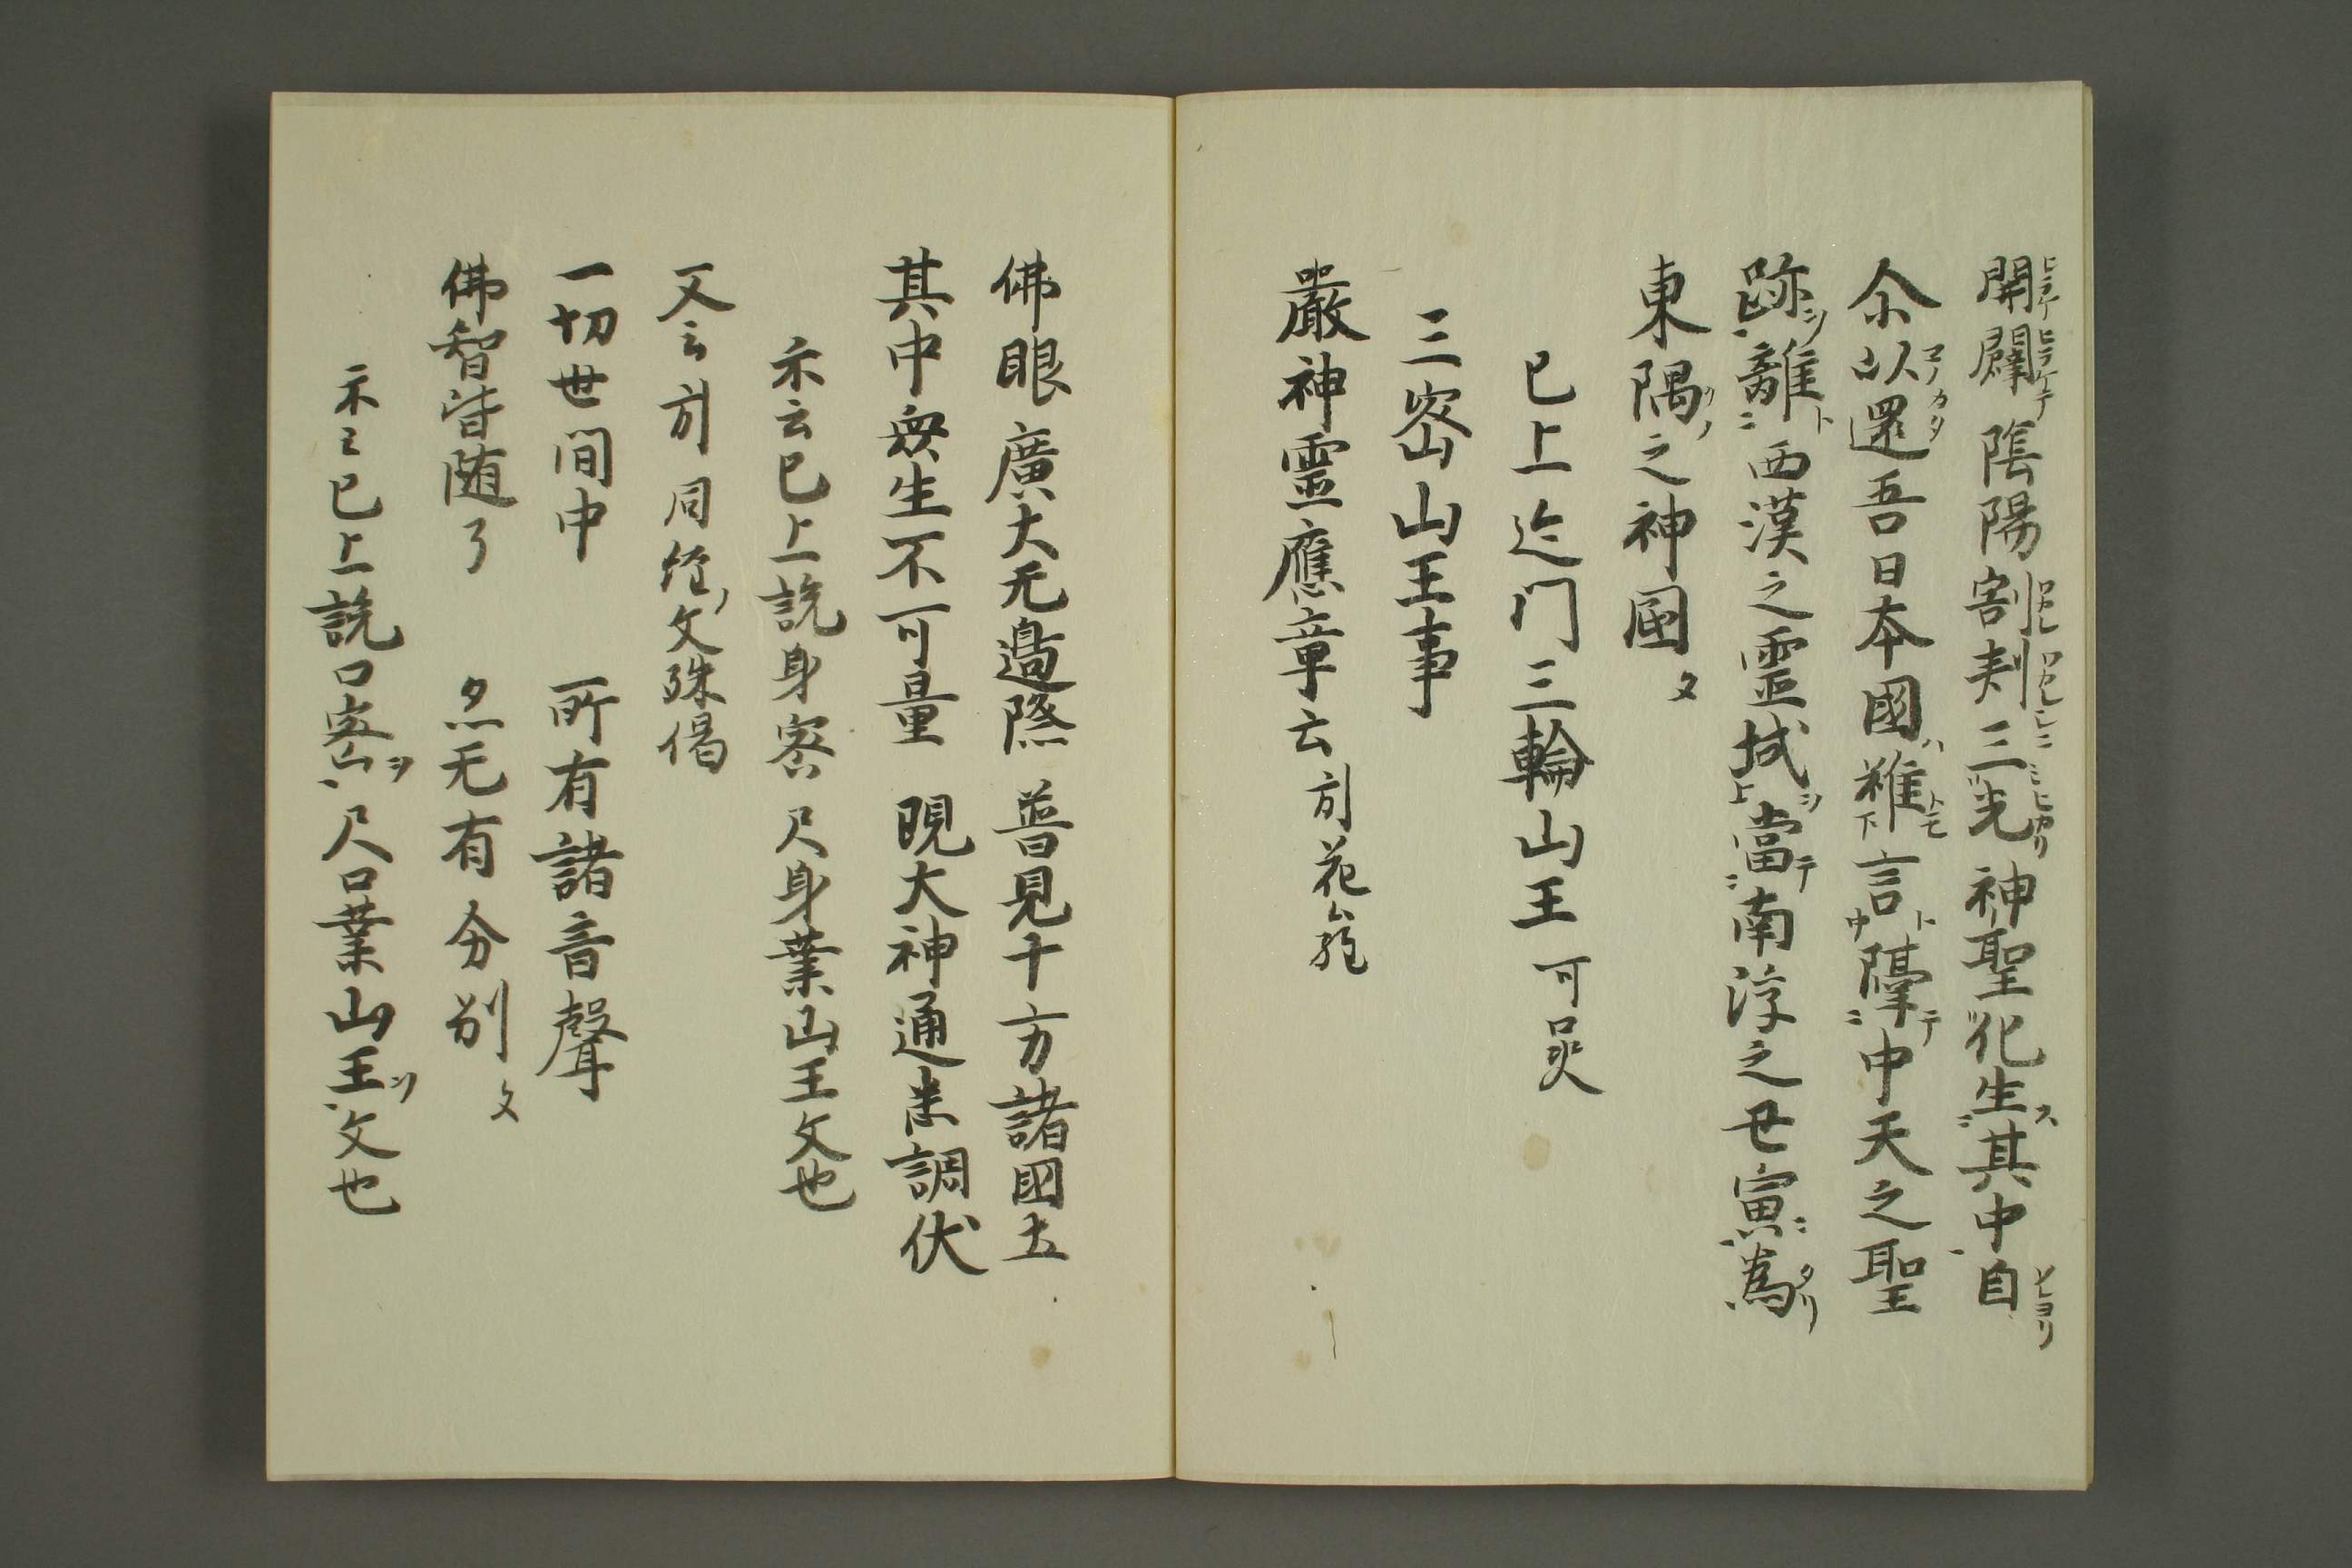 開闢陰陽割判三光神聖化生其中自
尒以還吾日本國雖言隔中天之聖
跡離西漢之靈域當南浮之丑寅為
東隅之神国文
已上迄门三輪山王可㫖
三密山王事
嚴神靈應章云
佛眼廣大无邊際 普見十方諸國土
其中衆生不可量 現大神通悉調伏
示云已上説身密尺身業山王文也
又云前同經文殊偈
一切世間中 所有諸音聲
佛智皆随了 亦无有分別文
示云已上説口密ヲ尺口業山王ヲ文也